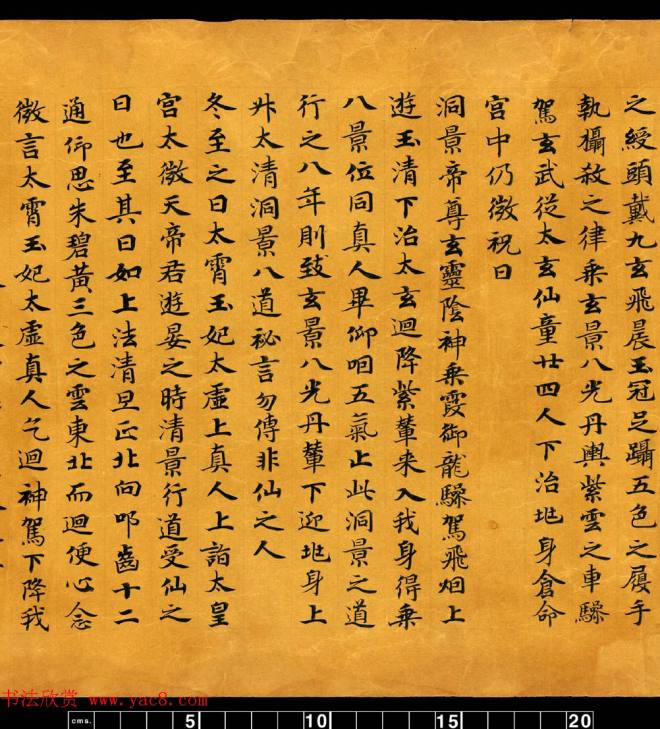 之綬頭戴九玄飛晨玉冠足躡五色之履手
執攝殺之律乘玄景八光丹輿紫雲之車驂
駕玄武從太玄仙童廿四人下治地身倉命
宮中仍微祝曰
洞景帝尊玄靈陰神乘霞御龍驂駕飛烟上
遊玉清下治太玄迴降紫輦来入我身得乘
八景位同真人畢仰咽五氣止此洞景之道
行之八年則致玄景八光丹輦下迎地身上
升太清洞景八道祕言勿傳非仙之人
冬至之日太霄玉妃太虛上真人上詣太皇
宮太微天帝君遊晏之時清景行道受仙之
日也至其日如上法清旦正北向叩齒十二
通仰思朱碧黃三色之雲東北而迴便心念
微言太霄玉妃太虛真人乞迴神駕下降我
书法欣赏 www.yac8.com
cms. 5 10 15 20